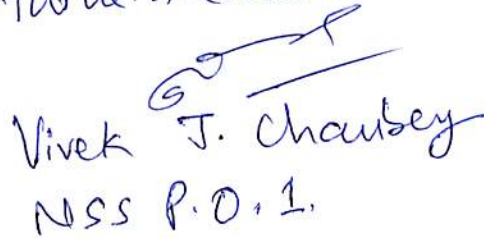 Vivek J. Chaubey
NSS P.O. 1.